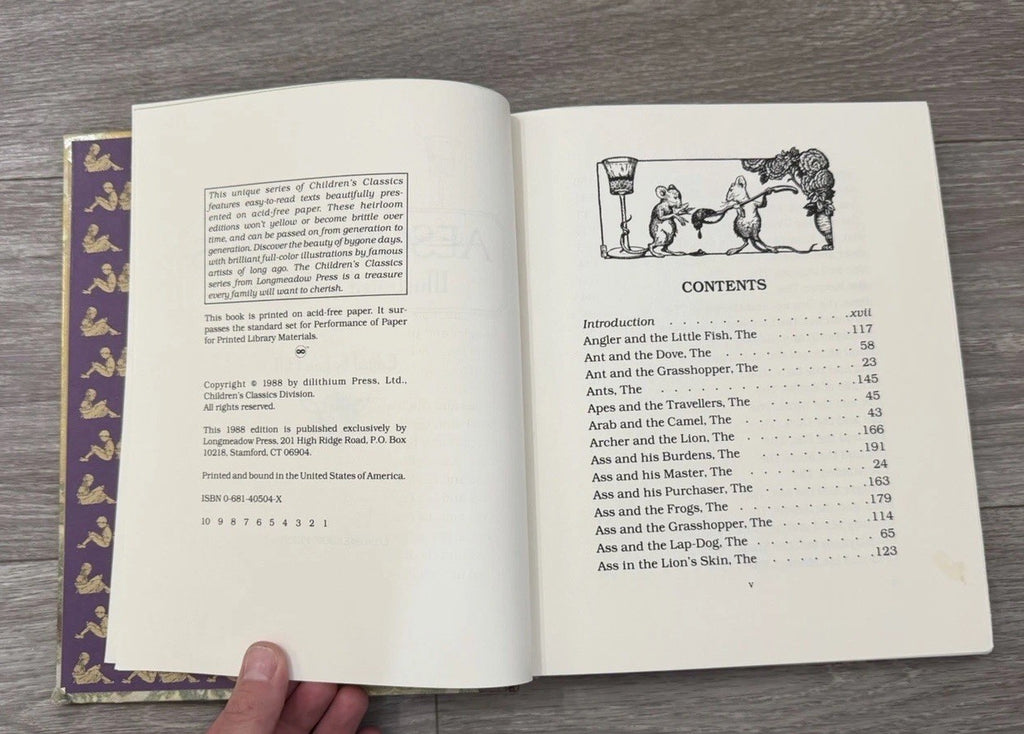 This unique series of Children's Classics
features easy-to-read texts beautifully pres-
ented on acid-free paper. These heirloom
editions won't yellow or become brittle over
time, and can be passed on from generation to
generation. Discover the beauty of bygone days,
with brilliant full-color illustrations by famous
artists of long ago. The Children's Classics
series from Longmeadow Press is a treasure
every family will want to cherish.
This book is printed on acid-free paper. It sur-
passes the standard set for Performance of Paper
for Printed Library Materials.
∞™
Copyright © 1988 by dilithium Press, Ltd.,
Children's Classics Division.
All rights reserved.
This 1988 edition is published exclusively by
Longmeadow Press, 201 High Ridge Road, P.O. Box
10218, Stamford, CT 06904.
Printed and bound in the United States of America.
ISBN 0-681-40504-X
10 9 8 7 6 5 4 3 2 1
CONTENTS
Introduction . . . . . . . . . . .xvii
Angler and the Little Fish, The . . . . . . .117
Ant and the Dove, The . . . . . . . . . 58
Ant and the Grasshopper, The . . . . . . . 23
Ants, The . . . . . . . . . . . . .145
Apes and the Travellers, The . . . . . . . 45
Arab and the Camel, The . . . . . . . . 43
Archer and the Lion, The . . . . . . . .166
Ass and his Burdens, The . . . . . . . .191
Ass and his Master, The . . . . . . . . 24
Ass and his Purchaser, The . . . . . . .163
Ass and the Frogs, The . . . . . . . . .179
Ass and the Grasshopper, The . . . . . . .114
Ass and the Lap-Dog, The . . . . . . . . 65
Ass in the Lion's Skin, The . . . . . . .123
v